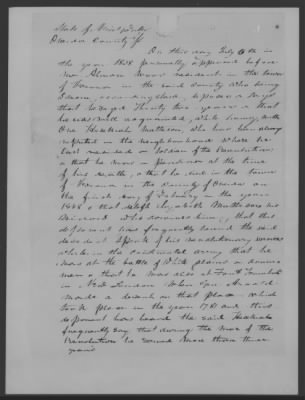 State of New York
Oneida County ss
On this day July 6th in
the year 1858 personally appeared before
me Abram
resident in the town
of Vernon in the said county who being
Sworn according to law, deposes & says
that he is aged Thirty two years & that
he was well acquainted, while living, with
One Hezekiah Matteson, who has been always
reputed in the neighbourhood where he
last resided a Soldier of the Revolution;
& that he was a pensioner at the time
of his death, & that he died in the town
of Vernon in the County of Oneida on
the first day of February in the year
1848 & that
Matteson was his
Widow who survives him; that this
deponent has frequently heard the said
deceased Speak of his revolutionary services
while in the continental army that he
was at the battle of White plains
& that he was also at Fort Trumbull
in New London when Gen Arnold
made a descent on that place which
took place in the year 1781 and this
deponent has heard the said Hezekiah
frequently say that during the war of the
Revolution he served more than three
years